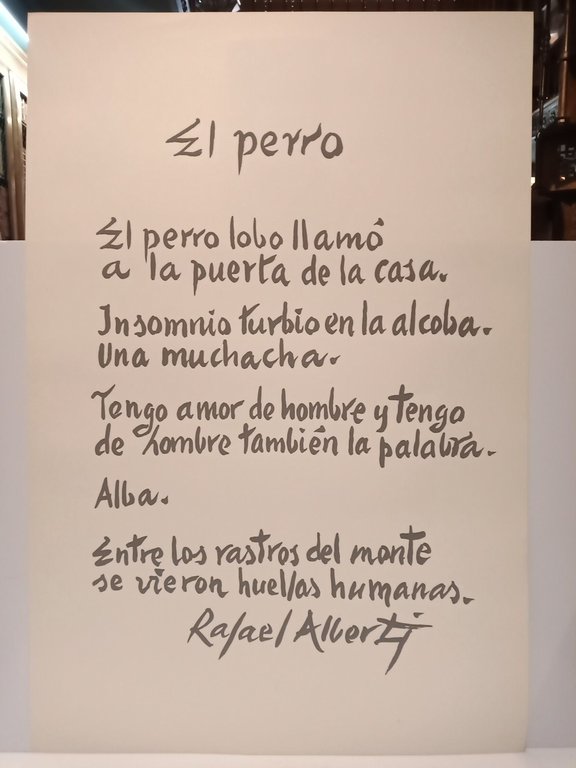 El perro
El perro lobo llamó
a la puerta de la casa.
Insomnio turbio en la alcoba.
Una muchacha.
Tengo amor de hombre y tengo
de hombre también la palabra.
Alba.
Entre los rastros del monte
se vieron huellas humanas.
Rafael Alberti